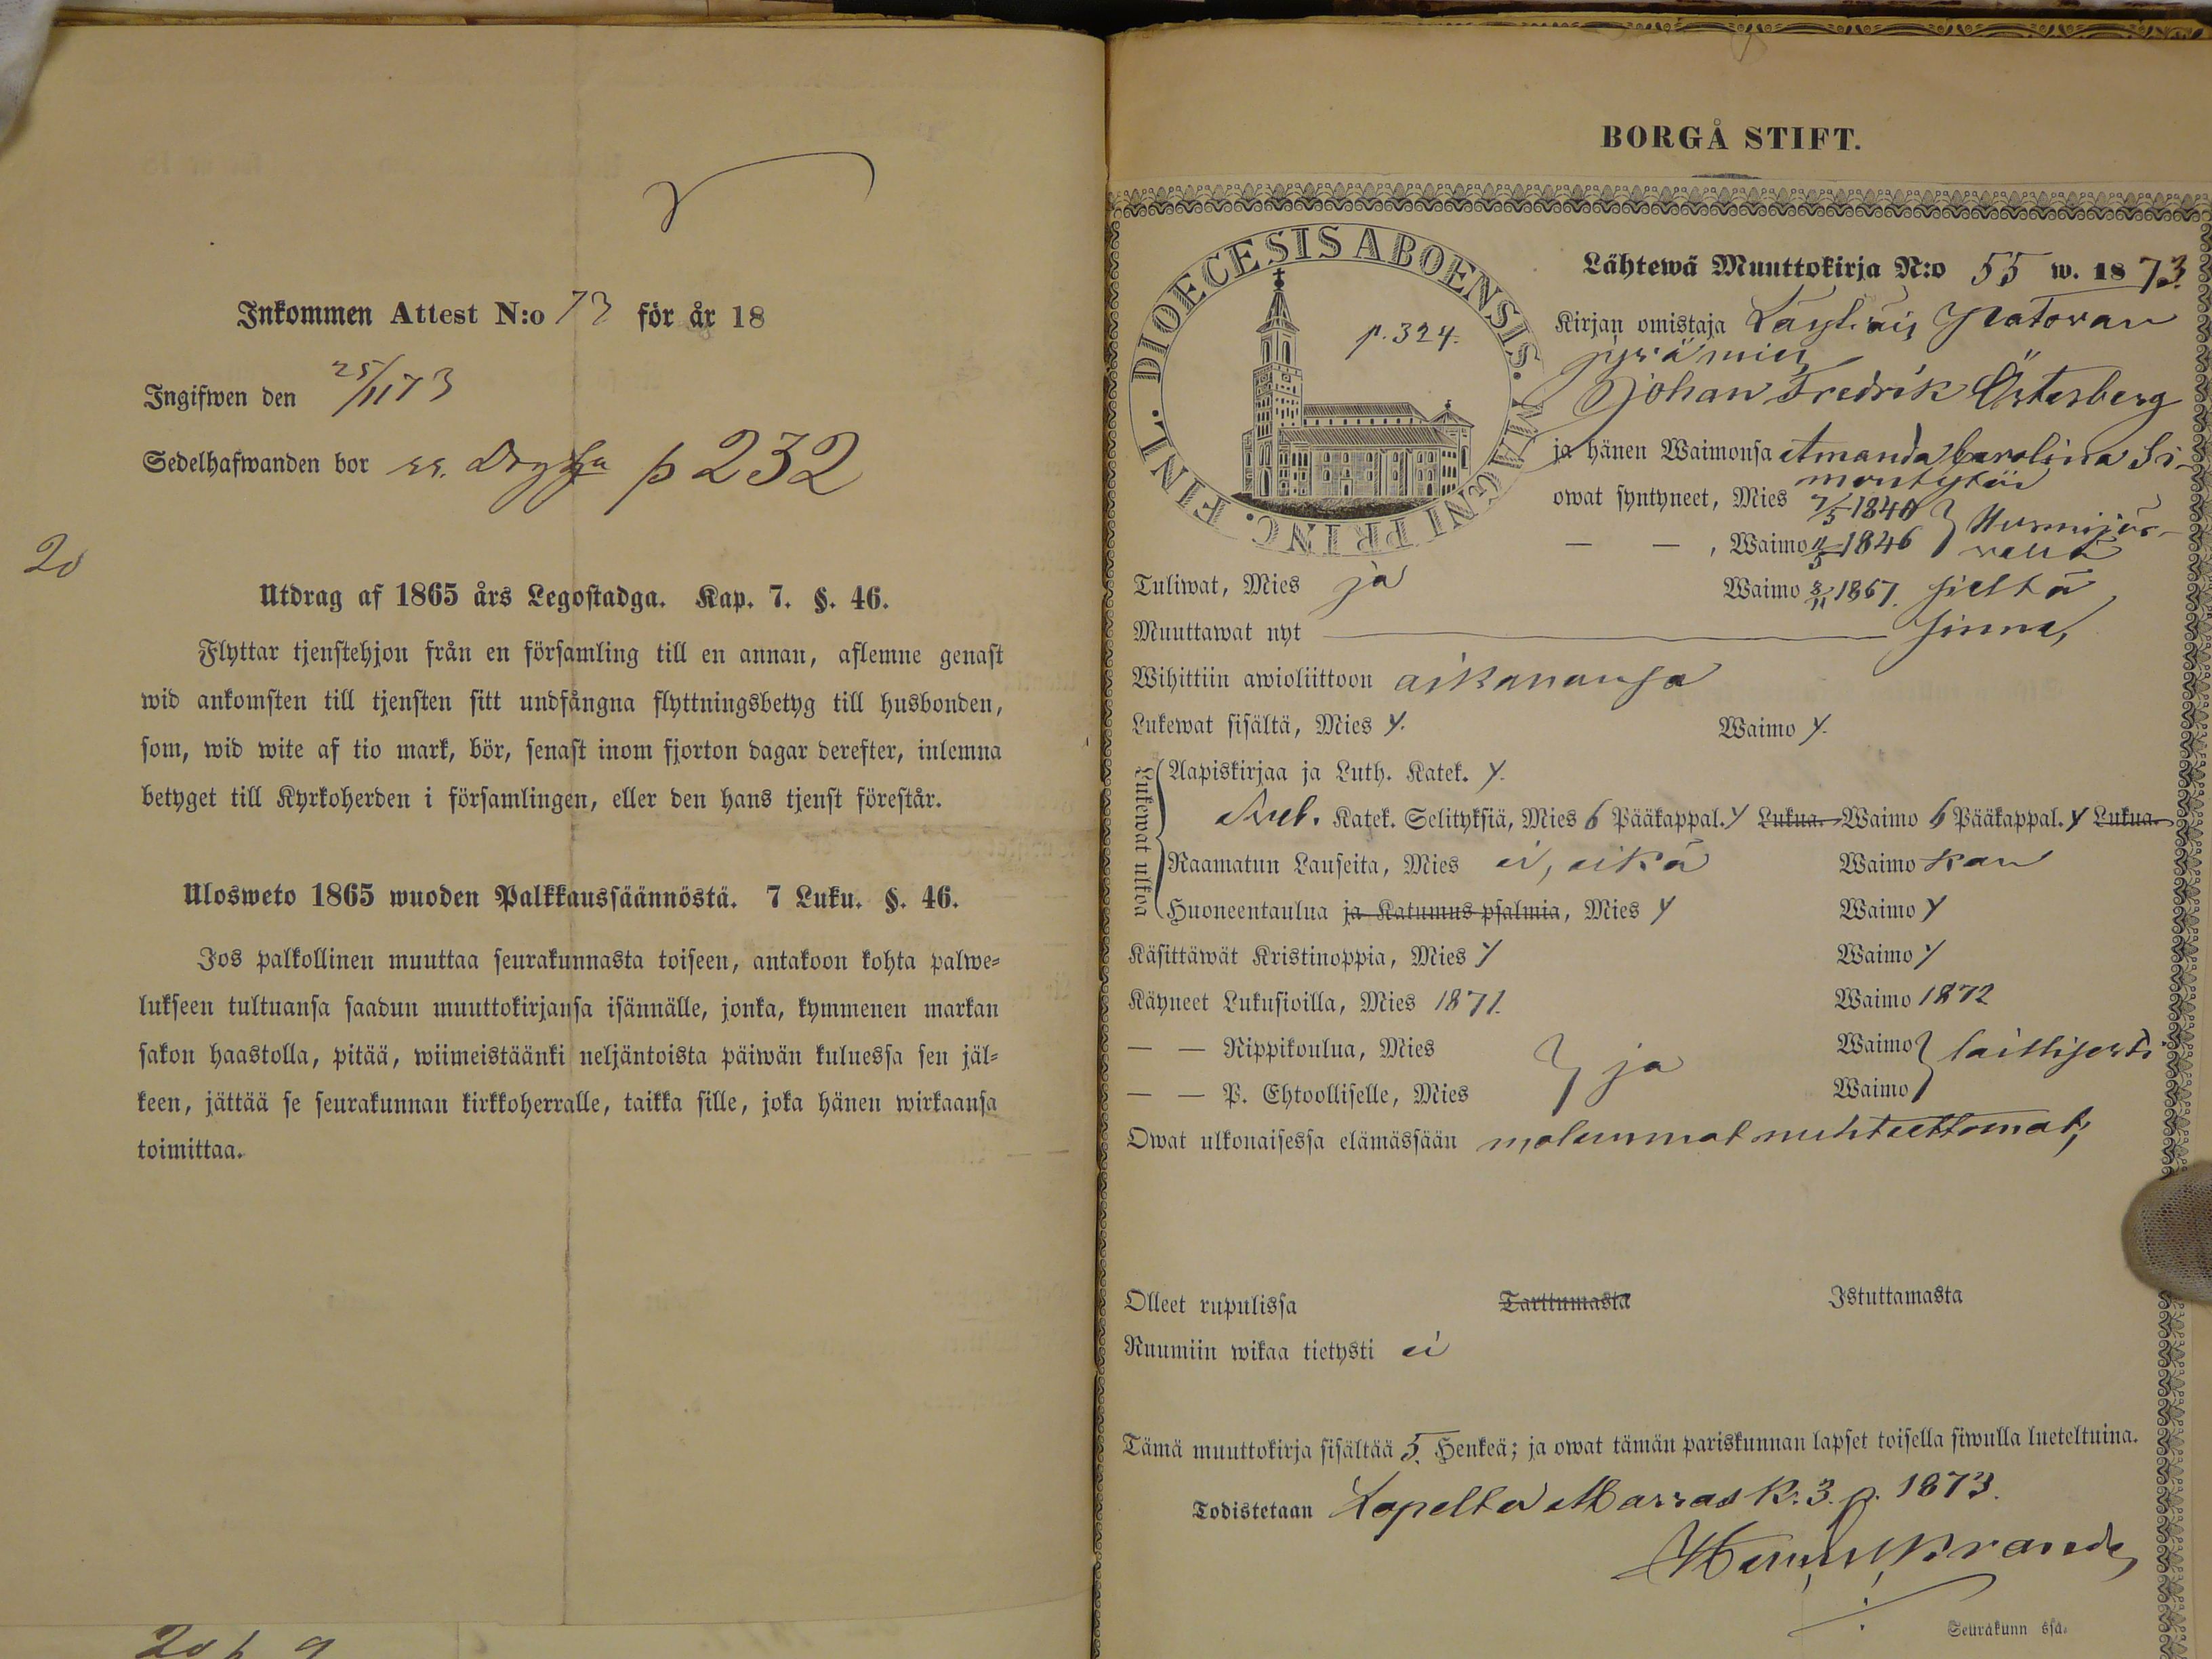 Inkommen Attest N:o 73 för år 18
Ingifwen den 25/11 73
Sedelhafwanden bor p 232
20
Utdrag af 1865 års Legostadga. Kap. 7. §. 46.
Flyttar tjenstehjon från en församling till en annan, aflemne genast
wid ankomsten till tjensten sitt undfångna flyttningsbetyg till husbonden,
som, wid wite af tio mark, bör, senast inom fjorton dagar derefter, inlemna
betyget till Kyrkoherden i församlingen, eller den hans tjenst förestår.
Ulosweto 1865 wuoden Palkkaussäännöstä. 7 Luku. §. 46.
Jos palkollinen muuttaa seurakunnasta toiseen, antakoon kohta palwe-
lukseen tultuansa saadun muuttokirjansa isännälle, jonka, kymmenen markan
sakon haastolla, pitää, wiimeistäänki neljäntoista päiwän kuluessa sen jäl-
keen, jättää se seurakunnan kirkkoherralle, taikka sille, joka hänen wirkaansa
toimittaa.
BORGÅ STIFT.
DIOECESIS ABOENSIS. MAGNI PRINC. FINL.
p. 324.
Lähtewä Muuttokirja N:o 55 w. 1873.
Kirjan omistaja Läyliäis
Johan Fredrik Österberg
ja hänen Waimonsa Amanda Carolina Si-
montytär
owat syntyneet, Mies 7/5 1840 } Nurmijär-
— — , Waimo 1846 wellä
Tuliwat, Mies ja Waimo 1867. sieltä
Muuttawat nyt — sinne,
Wihittiin awioliittoon aikanansa
Lukewat sisältä, Mies y. Waimo y.
Lukewat ulkoa
Aapiskirjaa ja Luth. Katek. y.
Katek. Selityksiä, Mies 6 Pääkappal. y Lukua. Waimo 6 Pääkappal. y Lukua.
Raamatun Lauseita, Mies ei, eikä Waimo kan
Huoneentaulua ja Katumus psalmia, Mies y Waimo y
Käsittäwät Kristinoppia, Mies y Waimo y
Käyneet Lukusioilla, Mies 1871. Waimo 1872
— — Rippikoulua, Mies } ja Waimo } laillisesti
— — P. Ehtoolliselle, Mies Waimo
Owat ulkonaisessa elämässään molemmat nuhteettomat;
Olleet rupulissa Tarttumasta Istuttamasta
Ruumiin wikaa tietysti ei
Tämä muuttokirja sisältää 5. Henkeä; ja owat tämän pariskunnan lapset toisella siwulla lueteltuina.
Todistetaan Lopella Marrask. 3. p. 1873.
Seurakunn ssa.